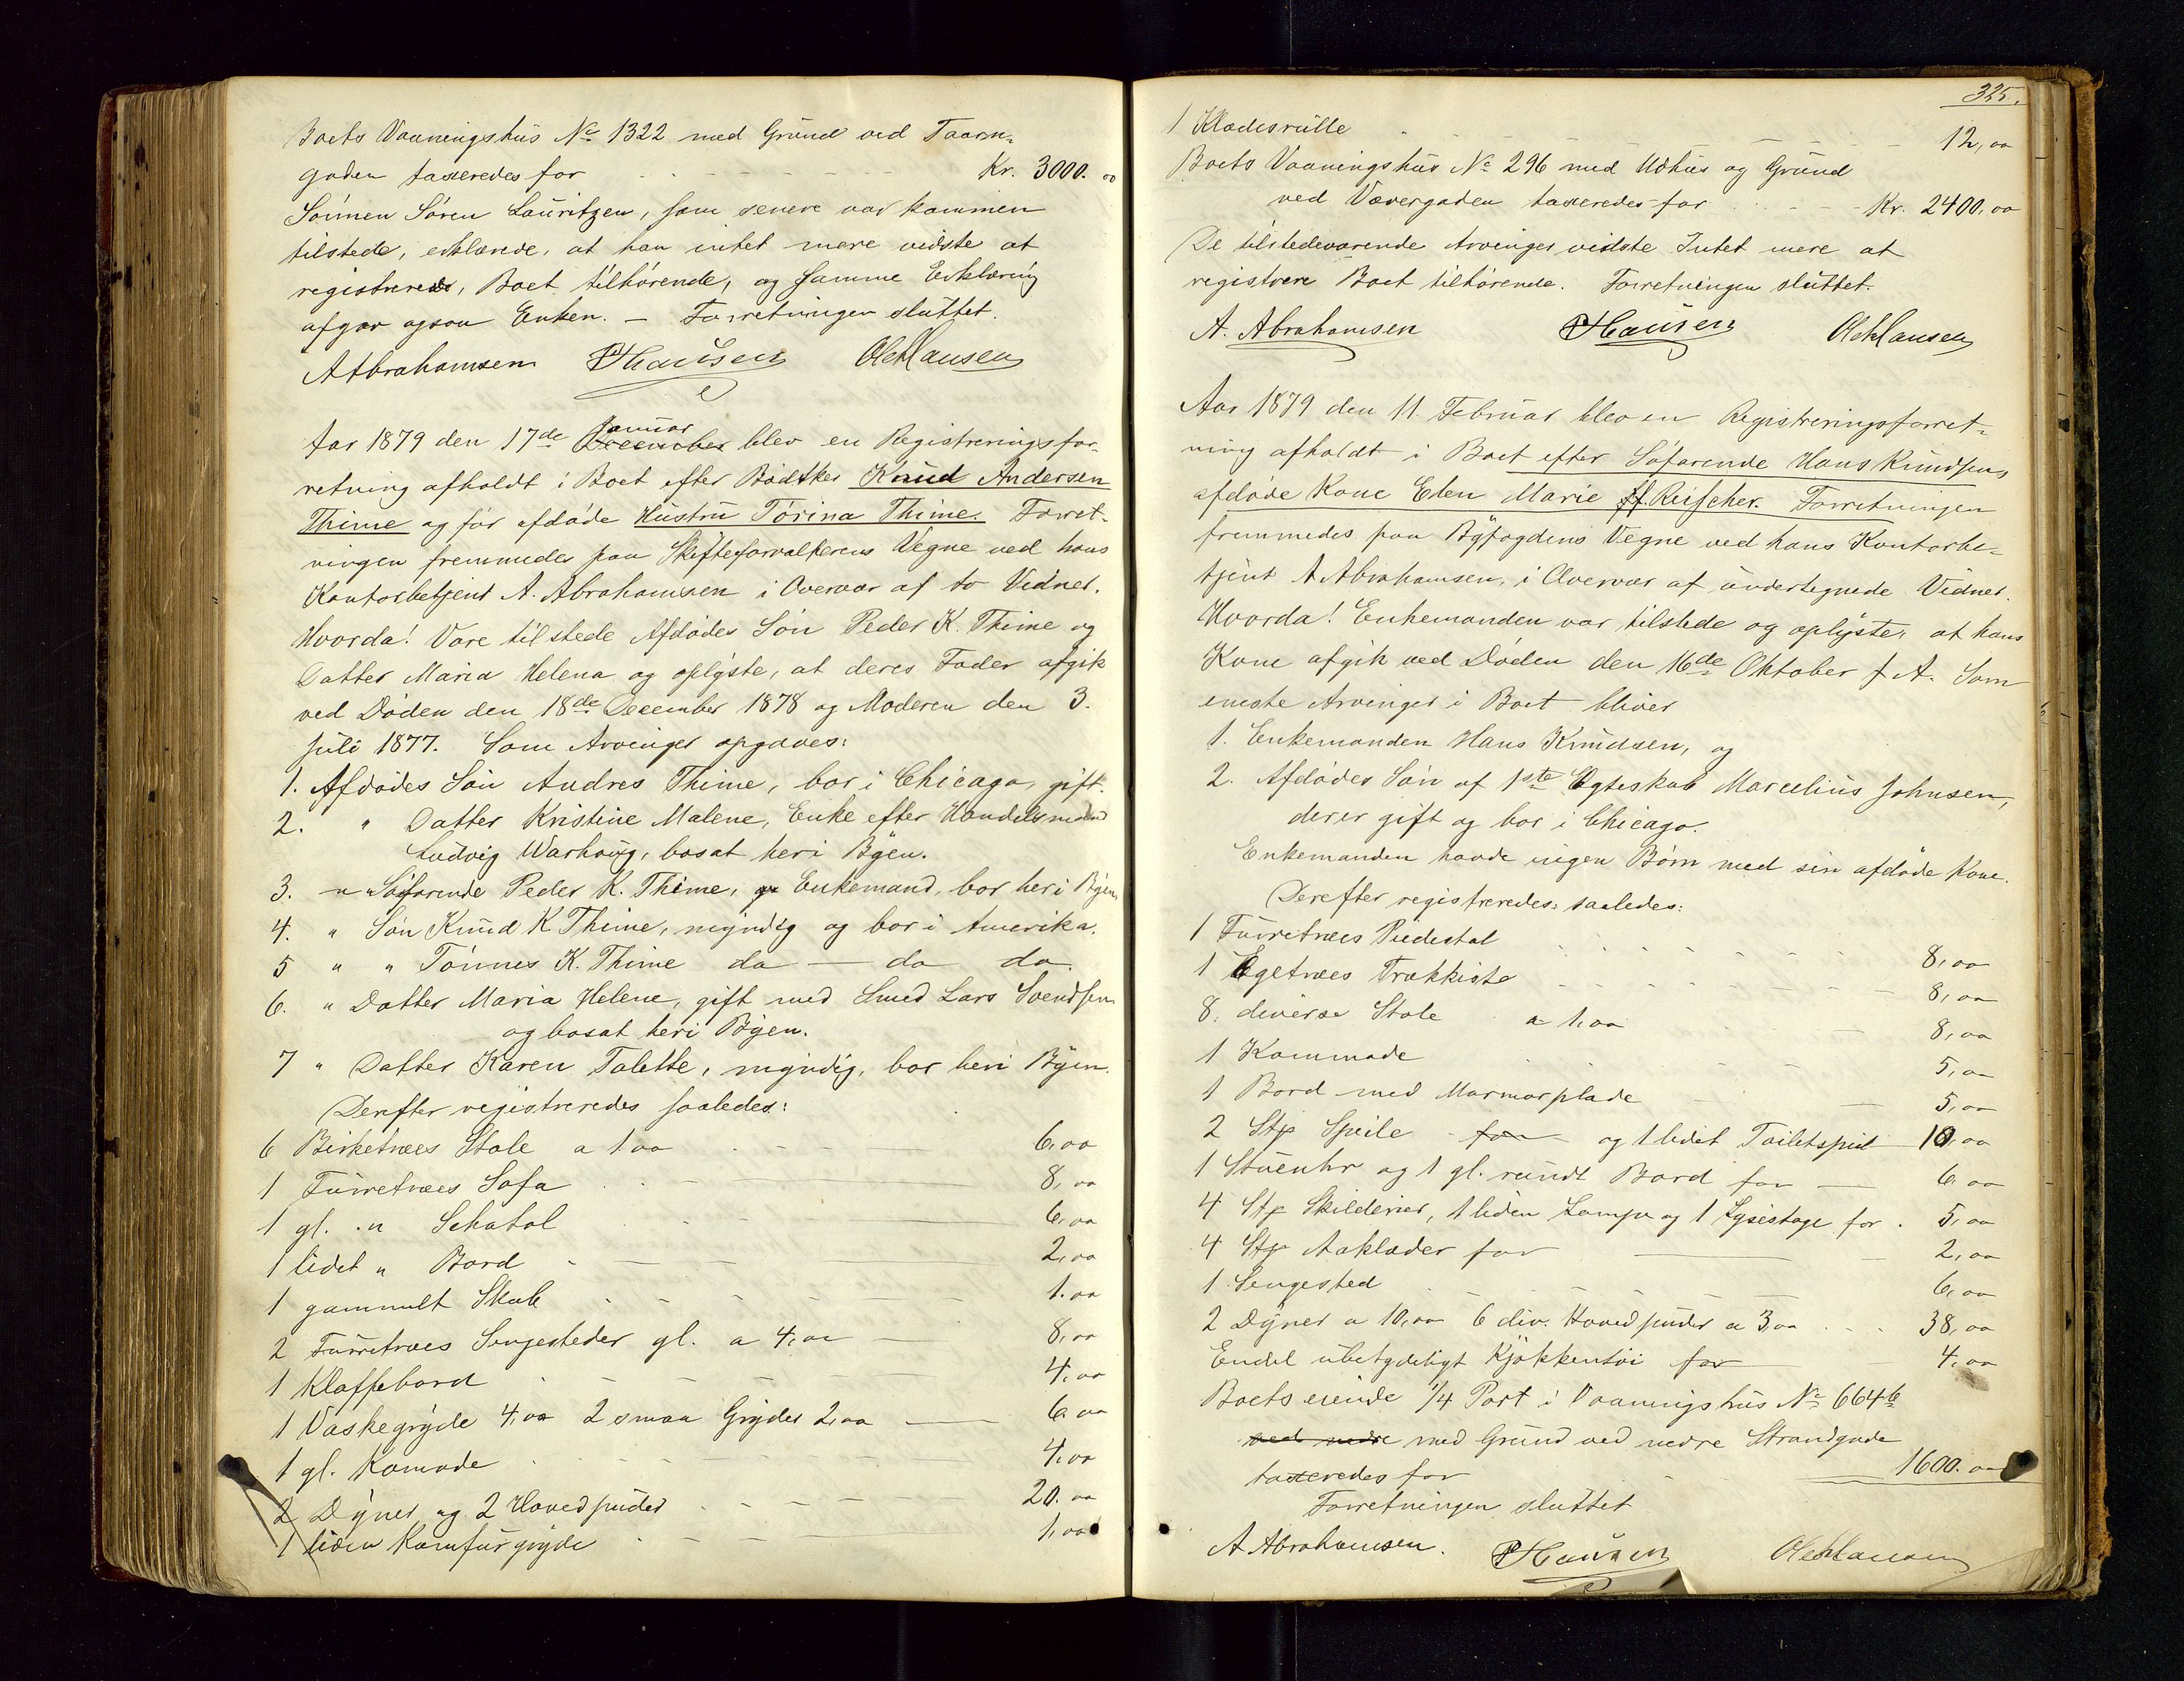 Boets Vaaningshus No 1322 med Grund ved Taarn-
gaden taxeredes for Kr. 3000.00
Sønnen Søren Lauritzen, som senere var kommen
tilstede, erklærede, at han intet mere vidste at
registreres, Boet tilhørende, og samme Erklæring
afgav ogsaa Enken. — Forretningen sluttet.
A Abrahamsen PHansen OleHansen
Aar 1879 den 17de Januar December blev en Registreringsfor-
retning afholdt i Boet efter Bødtker Knud Andersen
Thime og før afdøde Hustru Tórina Thime. Forret-
ningen fremmedes paa Skifteforvalterens Vegne ved hans
Kontorbetjent A. Abrahamsen i Overvær af to Vidner.
Hvorda! Vare tilstede Afdødes Søn Peder K. Thime og
Datter Maria Helena og oplyste, at deres Fader afgik
ved Døden den 18de December 1878 og Moderen den 3.
Juli 1877. Som Arvinger opgaves:
1. Afdødes Søn Andres Thime, bor i Chicago, gift.
2. " Datter Kristine Malene, Enke efter Handelsmand
Ludvig Warhoug, bosat heri Byen.
3. " Søfarende Peder K. Thime, Enkemand, bor heri Byen
4. " Søn Knud K Thime, myndig og bor i Amerika.
5 " " Tönnes K. Thime do — do do.
6. " Datter Maria Helene, gift med Smed Lars Svendsen
og bosat heri Byen.
7 " Datter Karen Talette, myndig, bor heri Byen.
Derefter registreredes saaledes:
6 Birketræes Stole a 1 00 6,00
1 Furretræes Sofa 8,00
1 gl. " Schatol 6,00
1 lidet " Bord 2,00
1 gammelt Skab 1.00
2 Furretræes Sengesteder gl. a 4,00 8,00
1 Klaffebord 4,00
1 Vaskegryde 4,00 2 smaa Gryder 2,00 6 00
1 gl. Komode 4,00
2 Dyner og 2 Hovedpuder 20.00
1 liden Komfurgryde 1,00
325.
1 Klædesrulle 12,00
Boets Vaaningshus No 296 med Udhus og Grund
ved Vævergaden taxeredes for Kr. 2400,00
De tilstedeværende Arvinger vidste Intet mere at
registrere Boet tilhørende. Forretningen sluttet.
A. Abrahamsen PHansen OleHansen
Aar 1879 den 11. Februar blev en Registreringsforret-
ning afholdt i Boet efter Søfarende Hans Knudsens
afdøde Kone Elen Marie f. Reischer. Forretningen
fremmedes paa Byfogdens Vegne ved hans Kontorbe-
tjent A Abrahamsen, i Overvær af undertegnede Vidner.
Hvorda! Enkemanden var tilstede og oplyste, at hans
Kone afgik ved Døden den 16de Oktober f A. Som
eneste Arvinger i Boet bliver
1. Enkemanden Hans Knudsen, og
2. Afdødes Søn af 1ste Egteskab Marcelius Johnsen,
der er gift og bor i Chicago.
Enkemanden havde ingen Børn med sin afdøde Kone.
Derefter registreredes saaledes:
1 Furretræes Piedestal 8,00
1 Egetræes Trækkiste 8,00
8. diverse Stole a 1.00 8,00
1 Kommode 5,00
1 Bord med Marmorplade 5,00
2 Stp Speile for og 1 lidet Toiletspeil 10,00
1 Stueuhr og 1 gl. rundt Bord for 6 00
4 Stp Skilderier, 1 liden Lampe og 1 Lysestage for 5,00
4 Stp Aaklæder for 2,00
1 Sengested 6,00
2 Dyner a 10,00 6 div. Hovedpuder a 3,00 38,00
Endel ubetydeligt Kjøkkentøi for 4,00
Boets eiende 1/4 Part i Vaaningshus No 664b
ved nedre med Grund ved nedre Strandgade
taxeredes for 1600.00
Forretningen sluttet
A Abrahamsen. PHansen OleHansen